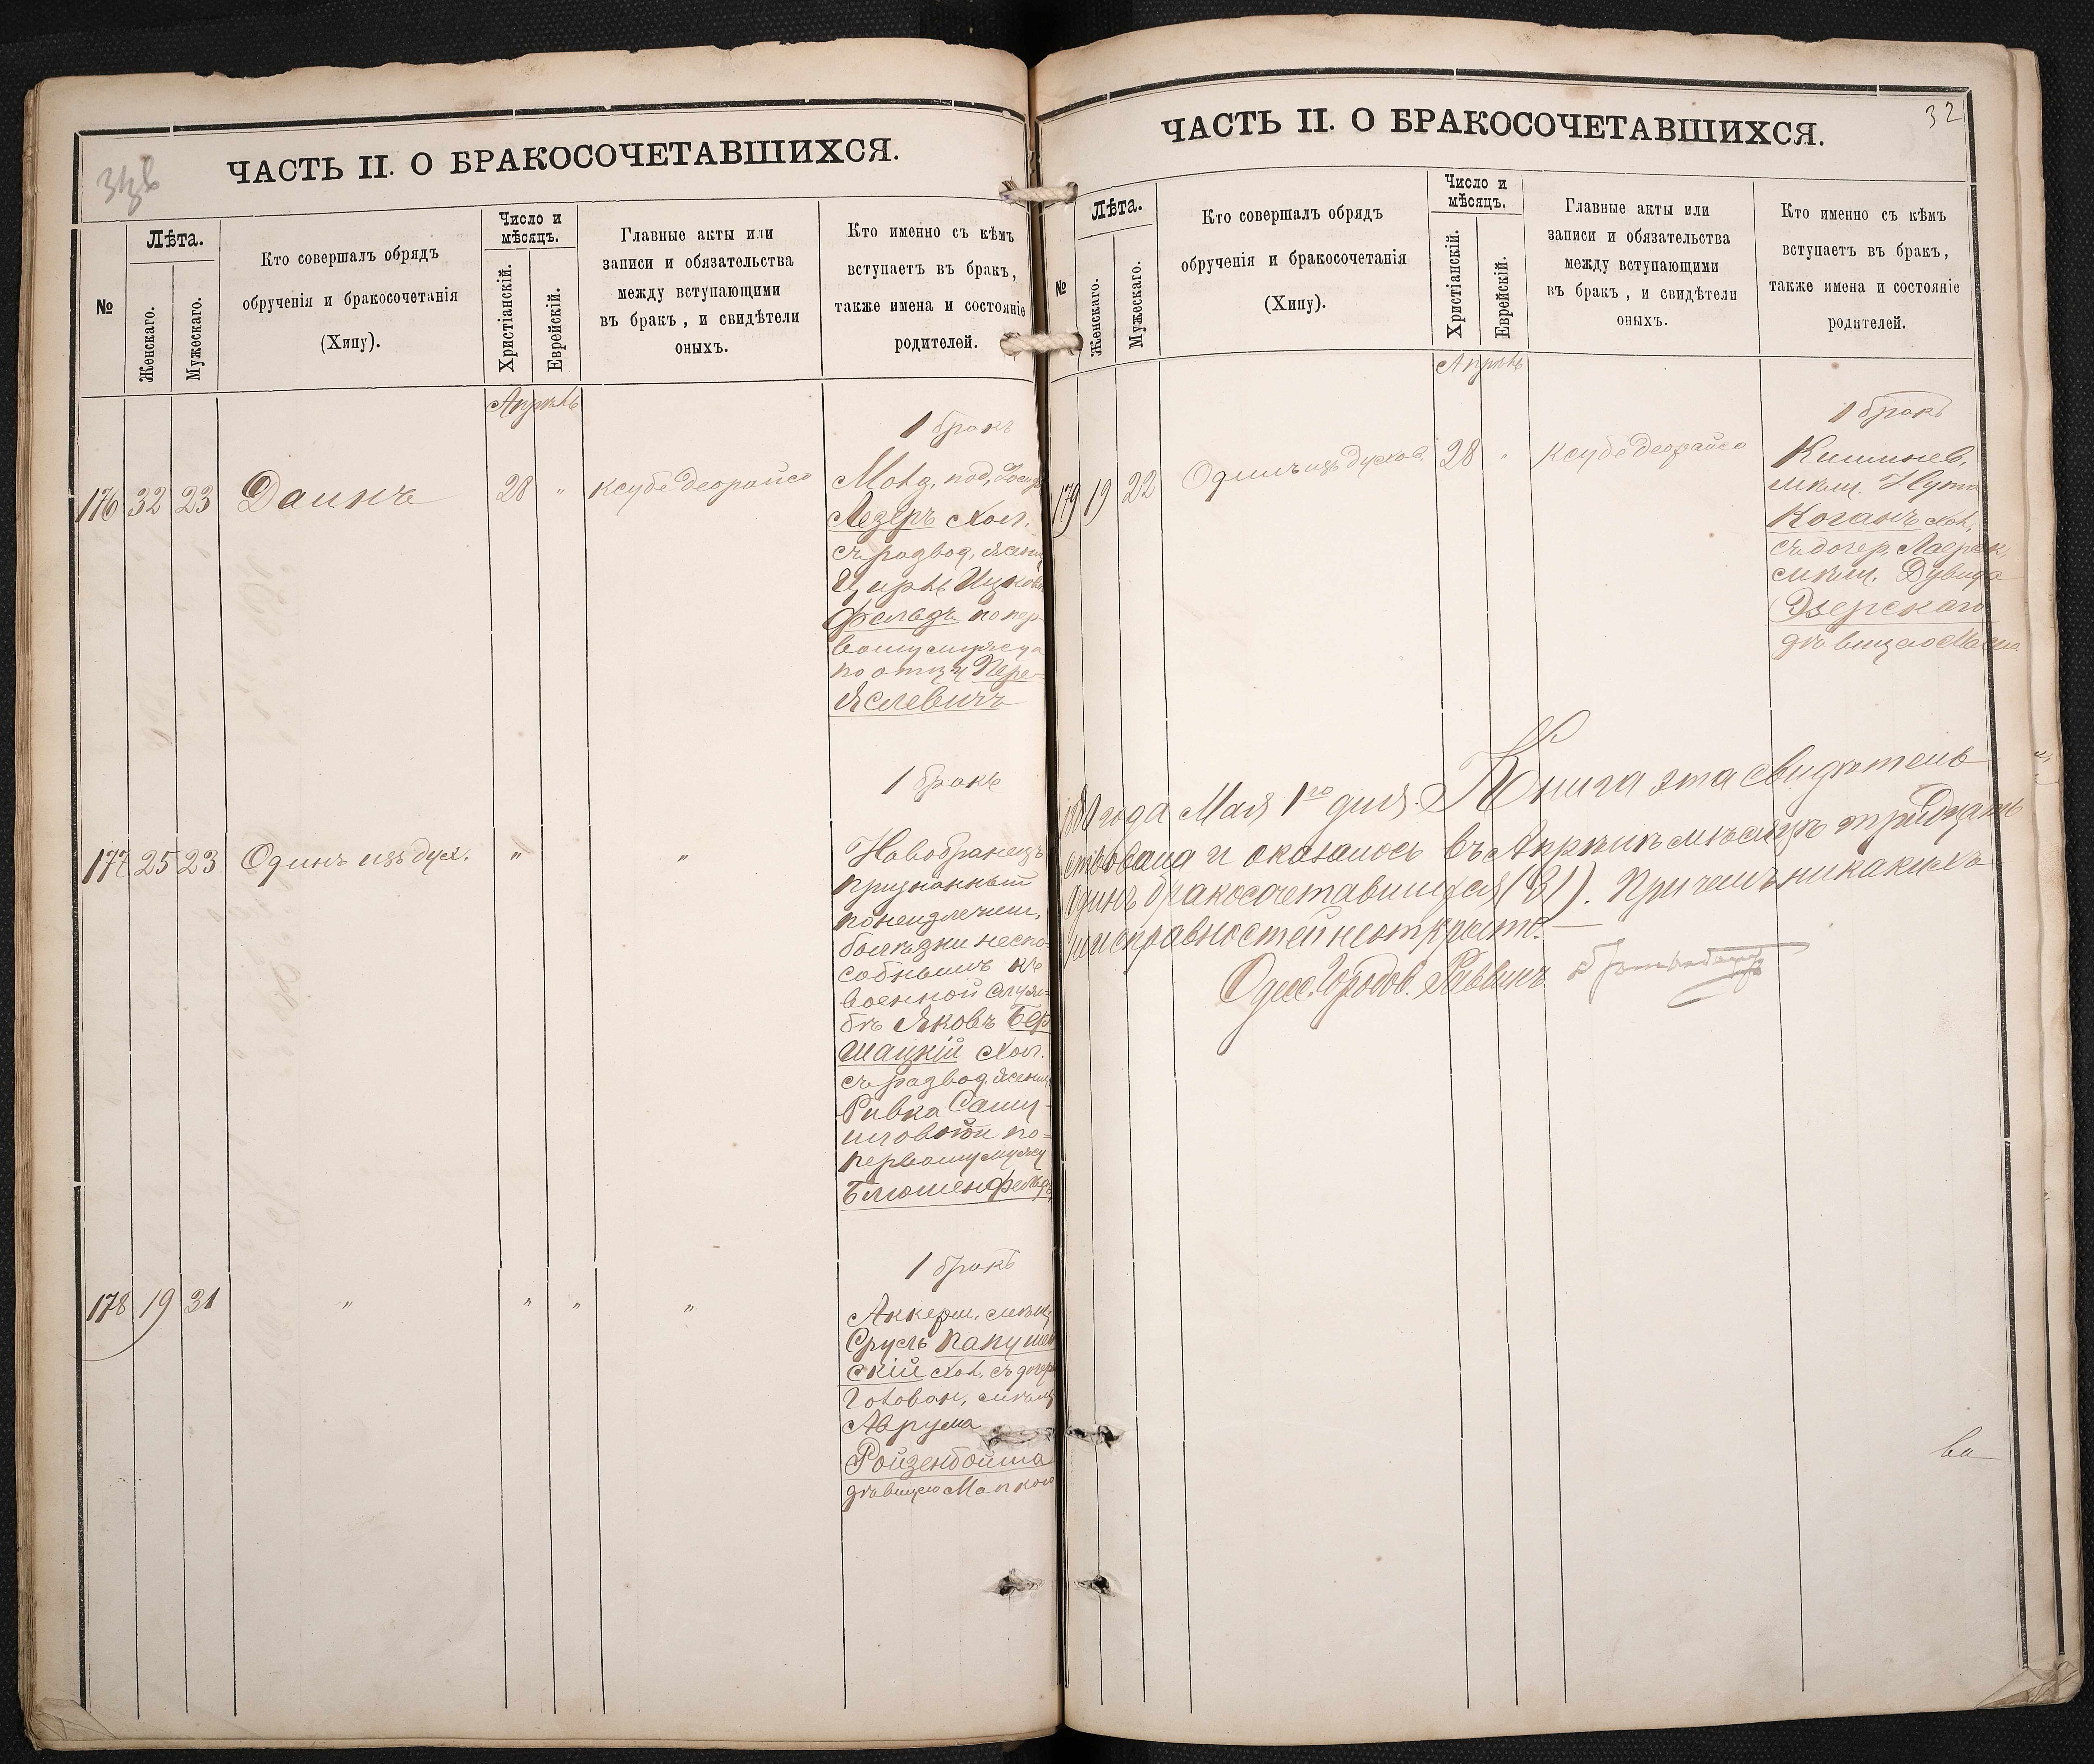 ЧАСТЬ II. О БРАКОСОЧЕТАВШИХСЯ.
№
Лѣта.
Женскаго.
Мужескаго.
Кто совершалъ обрядъ
обрученія и бракосочетанія
(Хипу).
Число и
мѣсяцъ.
Христіанскій.
Еврейскій.
Главные акты или
записи и обязательства
между вступающими
въ бракъ, и свидѣтели
оныхъ.
Кто именно съ кѣмъ
вступаетъ въ бракъ,
также имена и состояніе
родителей.
Апрѣль
176 32 23 Даинъ 28 " ксубе деорайсо
1 бракъ
Лезеръ Хол.
съ развод. жен.
Цирль
Фельдъ по пер-
вому мужу а
по отцу Пере-
яслевичъ
177 25 23 Одинъ изъ дух. " "
1 бракъ
Новобранецъ
признанный
по неизлечим.
болѣзни неспо-
собнымъ къ
военной служ-
бѣ Яковъ Бер
шацкій Хол.
съ развод. женщ.
Ривка Саму-
иловой по
первому мужу
Блюменфельдъ
178 19 31 " " " "
1 бракъ
Аккерм. мѣщ.
Сруль Папушей
скій хол. съ дочер.
Аврума
Ройзенбойма
дѣвицею
ЧАСТЬ II. О БРАКОСОЧЕТАВШИХСЯ.
32
№
Лѣта.
Женскаго.
Мужескаго.
Кто совершалъ обрядъ
обрученія и бракосочетанія
(Хипу).
Число и
мѣсяцъ.
Христіанскій.
Еврейскій.
Главные акты или
записи и обязательства
между вступающими
въ бракъ, и свидѣтели
оныхъ.
Кто именно съ кѣмъ
вступаетъ въ бракъ,
также имена и состояніе
родителей.
Апрѣль
179 19 22 Одинъ изъ духов. 28 " ксубе деорайсо
1 бракъ
Кишинев.
мѣщ. Нута
Коганъ хол.
съ дочер.
мѣщ. Дувида
Озерскаго
дѣвицею
года Мая 1го дня. Книга эта свидѣтель
ствована и оказалось въ Апрѣлѣ мѣсяцѣ тридцать
одинъ бракосочетавшихся (31). При чемъ никакихъ
неисправностей не открыто.—
Одес. Городов. Раввинъ